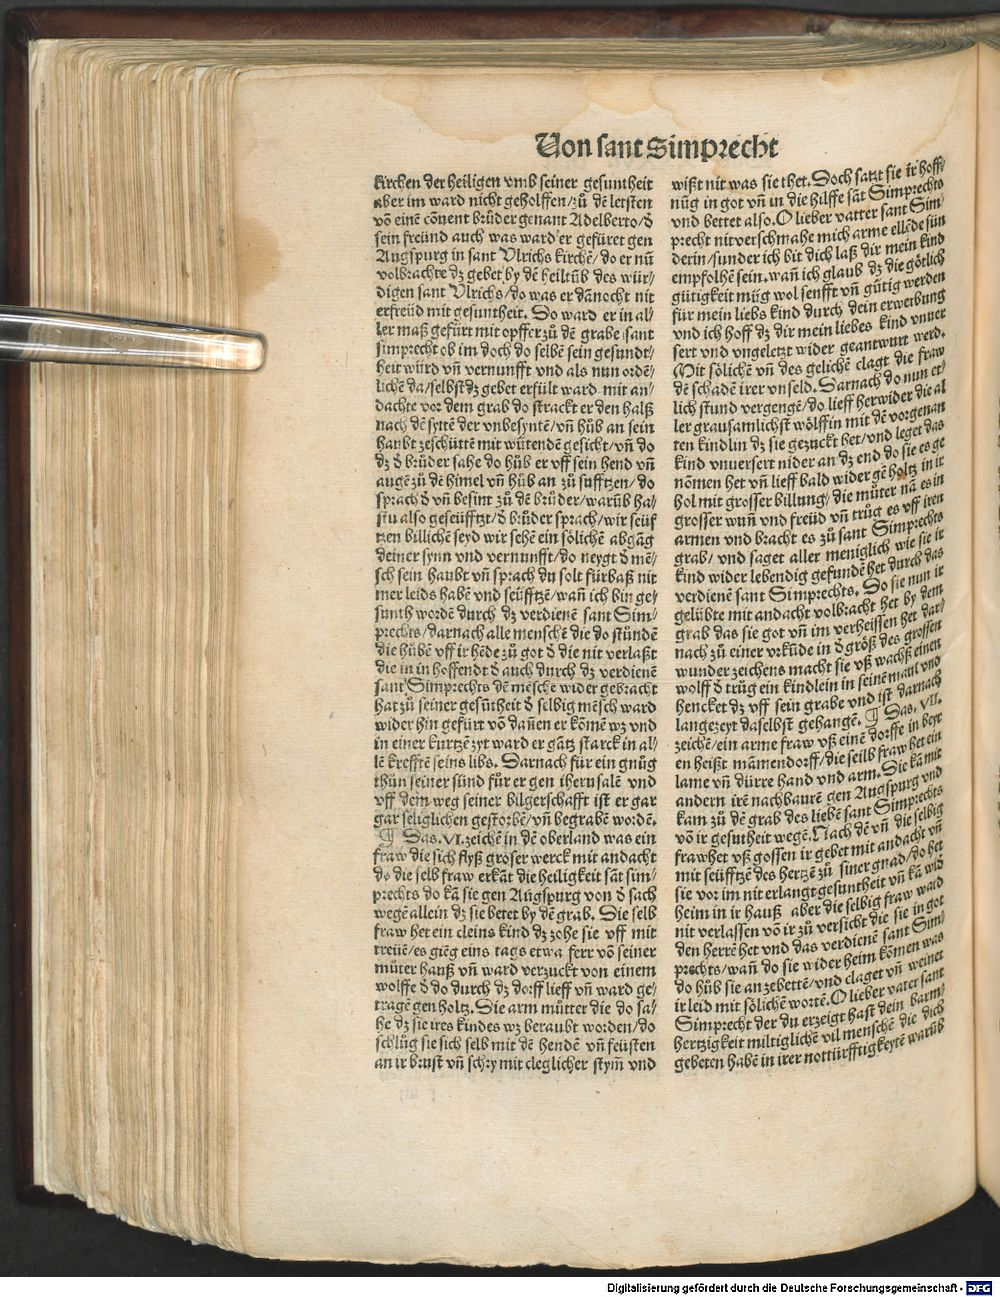 Von sant Simprecht
kirchen der heiligen vmb seiner gesuntheit
aber im ward nicht geholffen/zů dē letsten
võ einē cōnent brůder genant Adelberto/d̄
sein freünd auch was ward er gefüret gen
Augspurg in sant Vlrichs kirchē/do er nū
volbrachte dz gebet by dē heiltūb des wür/
digen sant Vlrichs/do was er dānocht nit
erfreüd mit gesuntheit. So ward er in al/
ler maß gefürt mit opffer zů dē grabe sant
simprecht ob im doch do selbē sein gesundt/
heit würd vñ vernunfft vnd als nun ordē/
lichē da/selbst dz gebet erfült ward mit an/
dachte vor dem grab do strackt er den halß
nach dē sytte der vnbesyntē/vñ hůb an sein
haubt zeschüttē mit wütendē gesicht/vñ do
dz d̄ brůder sahe do hůb er vff sein hend vñ
augē zů dē himel vñ hůb an zů sufftzen/do
sprach d̄ vñ besint zů dē brůder/warūb ha/
stu also geseüfftzt/d̄ brůder sprach/wir seüf
tzen billichē seyd wir sehē ein sölichē abgāg
deiner synn vnd vernunfft/do neygt d̄ mē/
sch sein haubt vñ sprach du solt fürbaß nit
mer leids habē vnd seüfftzē/wañ ich bin ge/
sunth wordē durch dz verdienē sant Sim/
prechts/darnach alle menschē die do stůndē
die hůbē vff ir hēde zů got d̄ die nit verlaßt
die in in hoffendt d̄ auch durch dz verdienē
sant Simprechts dē mēsche wider gebracht
hat zů seiner gesūtheit d̄ selbig mēsch ward
wider hin gefürt võ dañen er kōmē wz vnd
in einer kurtzē zyt ward er gātz starck in al/
lē krefftē seins libs. Darnach für ein gnůg
thůn seiner sünd für er gen iherusalē vnd
vff dem weg seiner bilgerschafft ist er gar
gar seliglichen gestorbē/vñ begrabē wordē.
¶ Das. VI. zeichē in dē oberland was ein
fraw die sich flyß groser werck mit andacht
do die selb fraw erkāt die heiligkeit sāt sim/
prechts do kā sie gen Augspurg von d̄ sach
wegē allein dz sie betet by dē grab. Die selb
fraw het ein cleins kind dz zohe sie vff mit
treüē/es giēg eins tags etwa ferr võ seiner
můter hauß vñ ward verzuckt von einem
wolffe d̄ do durch dz dorff lieff vñ ward ge/
tragē gen holtz. Sie arm můtter die do sa/
he dz sie ires kindes wz beraubt worden/do
schlůg sie sich selb mit dē hendē vñ feüsten
an ir brust vñ schry mit cleglicher stym̄ vnd
wißt nit was sie thet. Doch satzt sie ir hoff/
nūg in got vñ in die hilffe sāt Simprechts
vnd bettet also. O lieber vatter sant Sim/
precht nit verschmahe mich arme ellēde sün
derin/sunder ich bit dich laß dir mein kind
empfolhē sein. wañ ich glaub dz die götlich
gütigkeit müg wol senfft vñ gütig werden
für mein liebs kind durch dein erwerbung
vnd ich hoff dz dir mein liebes kind vnuer
sert vnd vngeletzt wider geantwurt werd.
Mit sölichē vñ des gelichē clagt die fraw
dē schadē irer vnseld. Darnach do nun et/
lich stund vergengē/do lieff herwider die al
ler grausamlichst wölffin mit dē vorgenan
ten kindlin dz sie gezuckt het/vnd leget das
kind vnuersert nider an dz end do sie es ge
nōmen het vñ lieff bald wider gē holtz in ir
hol mit grosser billung/ die můter nā es in
grosser wuñ vnd freüd vñ trůg es vff iren
armen vnd bracht es zů sant Simprechts
grab/ vnd saget aller meniglich wie sie ir
kind wider lebendig gefundē het durch das
verdienē sant Simprechts. Do sie nun ir
gelübte mit andacht volbracht het by dem
grab das sie got vñ im verheissen het dar/
nach zů einer vrkūde in d̄ größ des grossen
wunder zeichens macht sie vß wachß einen
wolff d̄ trůg ein kindlein in seinē maul vnd
hencket dz vff sein grabe vnd ist darnach
langezeyt daselbst gehangē. ¶ Das. VII.
zeichē/ein arme fraw vß einē dorffe in beyr
en heißt māmendorff/die selb fraw het ein
lame vñ dürre hand vnd arm. Sie kā mit
andern irē nachbaurē gen Augspurg vnd
kam zů dē grab des liebē sant Simprechts
võ ir gesūtheit wegē. Nach dē vñ die selbig
fraw het vß gossen ir gebet mit andacht vñ
mit seüfftzē des hertzē zů siner gnad/do het
sie vor im nit erlangt gesuntheit vñ kā wid̄
heim in ir hauß aber die selbig fraw ward
nit verlassen võ ir zů versicht die sie in got
den herrē het vnd das verdienē sant Sim/
prechts/wañ do sie wider heim kōmen was
do hůb sie an zebettē/vnd claget vñ weinet
ir leid mit sölichē wortē. O lieber vater sant
Simprecht der du erzeigt hast dein barm/
hertzigkeit miltiglichē vil menschē die dich
gebeten habē in irer nottürfftigkeytē warūb
Digitalisierung gefördert durch die Deutsche Forschungsgemeinschaft - DFG